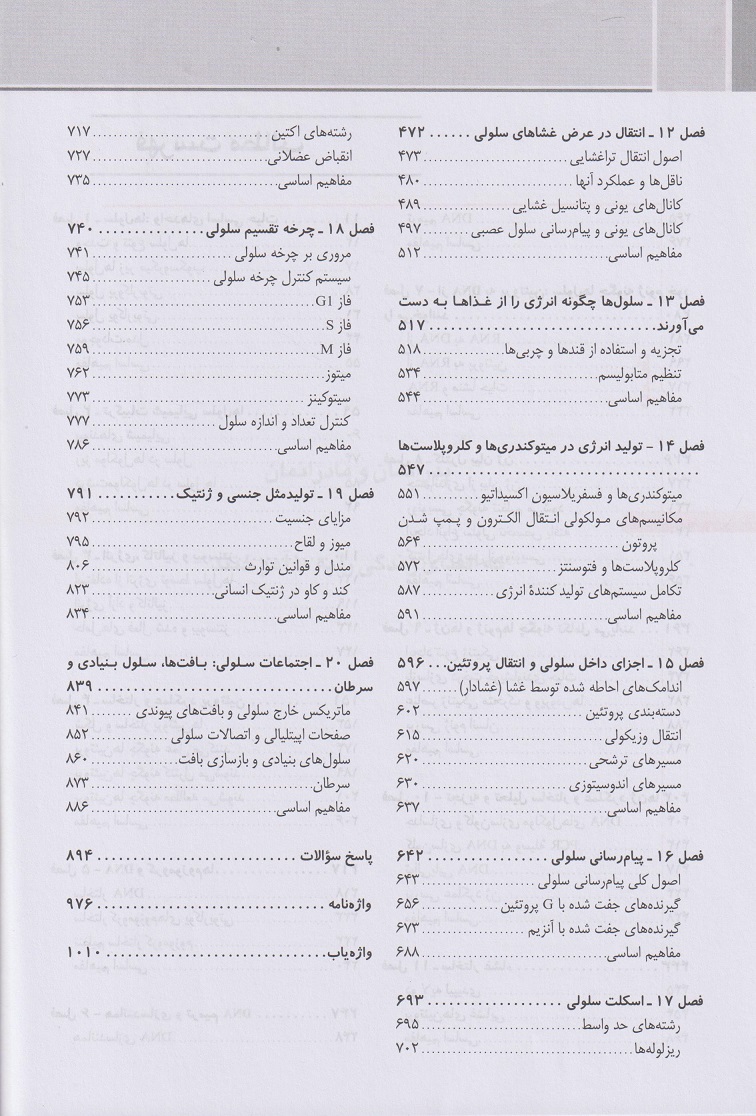 فصل ۱۲ ـ انتقال در عرض غشاهای سلولی ...... ۴۷۲
اصول انتقال تراغشایی ...... ۴۷۳
ناقل‌ها و عملکرد آنها ...... ۴۸۰
کانال‌های یونی و پتانسیل غشایی ...... ۴۸۹
کانال‌های یونی و پیام‌رسانی سلول عصبی ...... ۴۹۷
مفاهیم اساسی ...... ۵۱۲
فصل ۱۳ ـ سلول‌ها چگونه انرژی را از غذاها به دست
می‌آورند ...... ۵۱۷
تجزیه و استفاده از قندها و چربی‌ها ...... ۵۱۸
تنظیم متابولیسم ...... ۵۳۴
مفاهیم اساسی ...... ۵۴۴
فصل ۱۴ - تولید انرژی در میتوکندری‌ها و کلروپلاست‌ها
...... ۵۴۷
میتوکندری‌ها و فسفریلاسیون اکسیداتیو ...... ۵۵۱
مکانیسم‌های مولکولی انتقال الکترون و پمپ شدن
پروتون ...... ۵۶۴
کلروپلاست‌ها و فتوسنتز ...... ۵۷۲
تکامل سیستم‌های تولید کنندهٔ انرژی ...... ۵۸۷
مفاهیم اساسی ...... ۵۹۱
فصل ۱۵ ـ اجزای داخل سلولی و انتقال پروتئین ... ۵۹۶
اندامک‌های احاطه شده توسط غشا (غشادار) ...... ۵۹۷
دسته‌بندی پروتئین ...... ۶۰۲
انتقال وزیکولی ...... ۶۱۵
مسیرهای ترشحی ...... ۶۲۰
مسیرهای اندوسیتوزی ...... ۶۳۰
مفاهیم اساسی ...... ۶۳۷
فصل ۱۶ ـ پیام‌رسانی سلولی ...... ۶۴۲
اصول کلی پیام‌رسانی سلولی ...... ۶۴۳
گیرنده‌های جفت شده با G پروتئین ...... ۶۵۶
گیرنده‌های جفت شده با آنزیم ...... ۶۷۳
مفاهیم اساسی ...... ۶۸۸
فصل ۱۷ ـ اسکلت سلولی ...... ۶۹۳
رشته‌های حد واسط ...... ۶۹۵
ریزلوله‌ها ...... ۷۰۲
رشته‌های اکتین ...... ۷۱۷
انقباض عضلانی ...... ۷۲۷
مفاهیم اساسی ...... ۷۳۵
فصل ۱۸ ـ چرخه تقسیم سلولی ...... ۷۴۰
مروری بر چرخه سلولی ...... ۷۴۱
سیستم کنترل چرخه سلولی ...... ۷۴۵
فاز G1 ...... ۷۵۳
فاز S ...... ۷۵۶
فاز M ...... ۷۵۹
میتوز ...... ۷۶۲
سیتوکینز ...... ۷۷۳
کنترل تعداد و اندازه سلول ...... ۷۷۷
مفاهیم اساسی ...... ۷۸۶
فصل ۱۹ ـ تولیدمثل جنسی و ژنتیک ...... ۷۹۱
مزایای جنسیت ...... ۷۹۲
میوز و لقاح ...... ۷۹۵
مندل و قوانین توارث ...... ۸۰۶
کند و کاو در ژنتیک انسانی ...... ۸۲۳
مفاهیم اساسی ...... ۸۳۴
فصل ۲۰ ـ اجتماعات سلولی: بافت‌ها، سلول بنیادی و
سرطان ...... ۸۳۹
ماتریکس خارج سلولی و بافت‌های پیوندی ...... ۸۴۱
صفحات اپیتلیالی و اتصالات سلولی ...... ۸۵۲
سلول‌های بنیادی و بازسازی بافت ...... ۸۶۰
سرطان ...... ۸۷۳
مفاهیم اساسی ...... ۸۸۶
پاسخ سؤالات ...... ۸۹۴
واژه‌نامه ...... ۹۷۶
واژه‌یاب ...... ۱۰۱۰